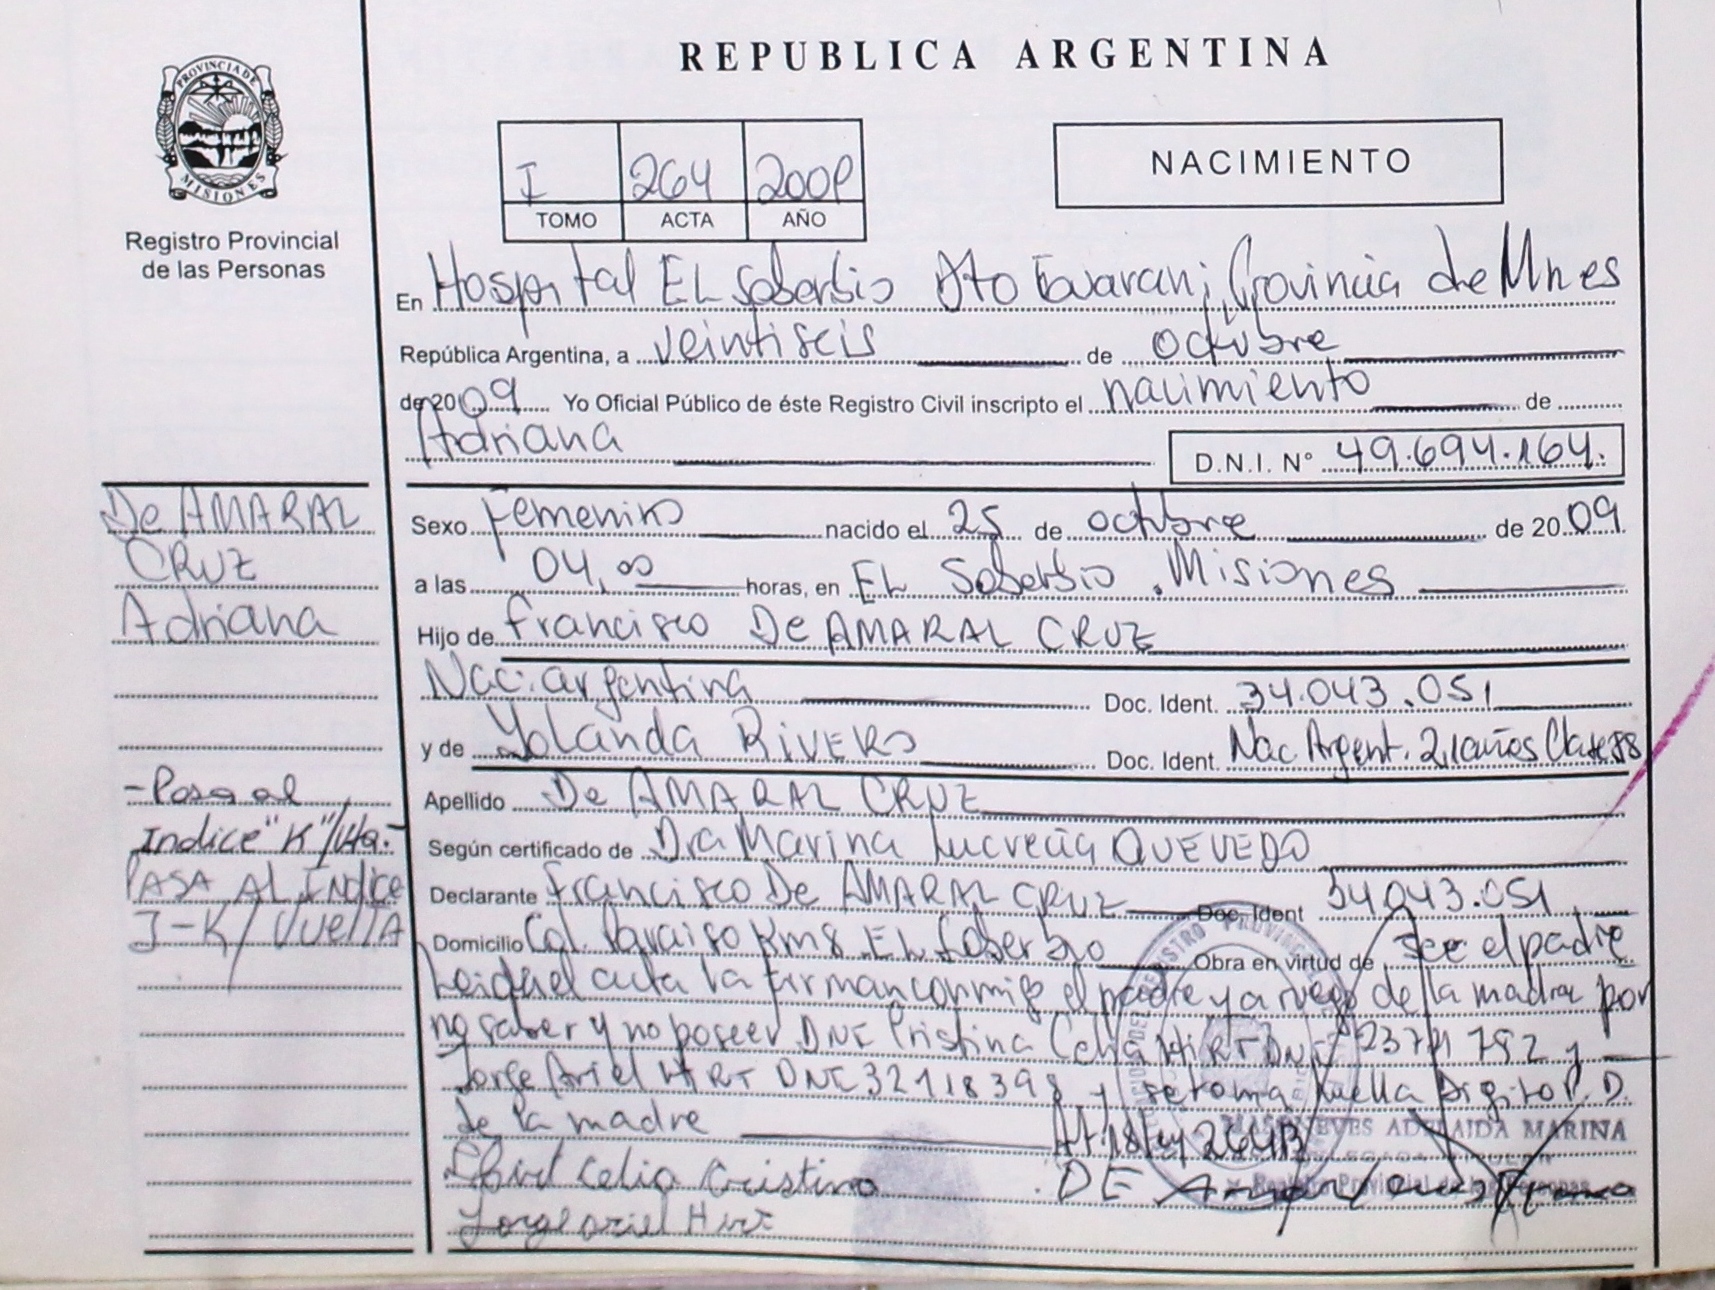 REPUBLICA ARGENTINA
PROVINCIA DE
MISIONES
Registro Provincial
de las Personas
I 264 2009
TOMO ACTA AÑO
NACIMIENTO
En Hospital EL Soberbio Dto Guarani, Provincia de Mnes
República Argentina, a veintiseis de octubre
de 2009 Yo Oficial Público de éste Registro Civil inscripto el nacimiento de
Adriana D.N.I. N° 49.694.164.
De AMARAL
CRUZ
Adriana
Sexo Femenino nacido el 25 de octubre de 2009
a las 04,00 horas, en EL Soberbio. Misiones
Hijo de Francisco De AMARAL CRUZ
Nac: argentina Doc. Ident. 34.043.051
y de Yolanda RIVERO Doc. Ident. Nac Argent. 21años Clase 88
Apellido De AMARAL CRUZ
Según certificado de Dra Marina Lucrecia QUEVEDO
Declarante Francisco De AMARAL CRUZ Doc. Ident 34043.051
Domicilio Col. Paraiso Km8 EL Soberbio Obra en virtud de ser el padre
Leida el acta la firman conmigo el padre y a ruego de la madre por
no saber y no poseer DNI Cristina Celia HIRT DNI 792 y
Jorge Ariel HIRT DNI 32118398 y se toma huella Digito P. D.
de la madre
- Pasa al
Indice "K"/Vta.-
PASA AL Indice
J-K/ VUELTA
NIEVES ADELAIDA MARINA
Registro Provincial de las Personas
Hirt Celia Cristina DE
Jorge Ariel Hirt